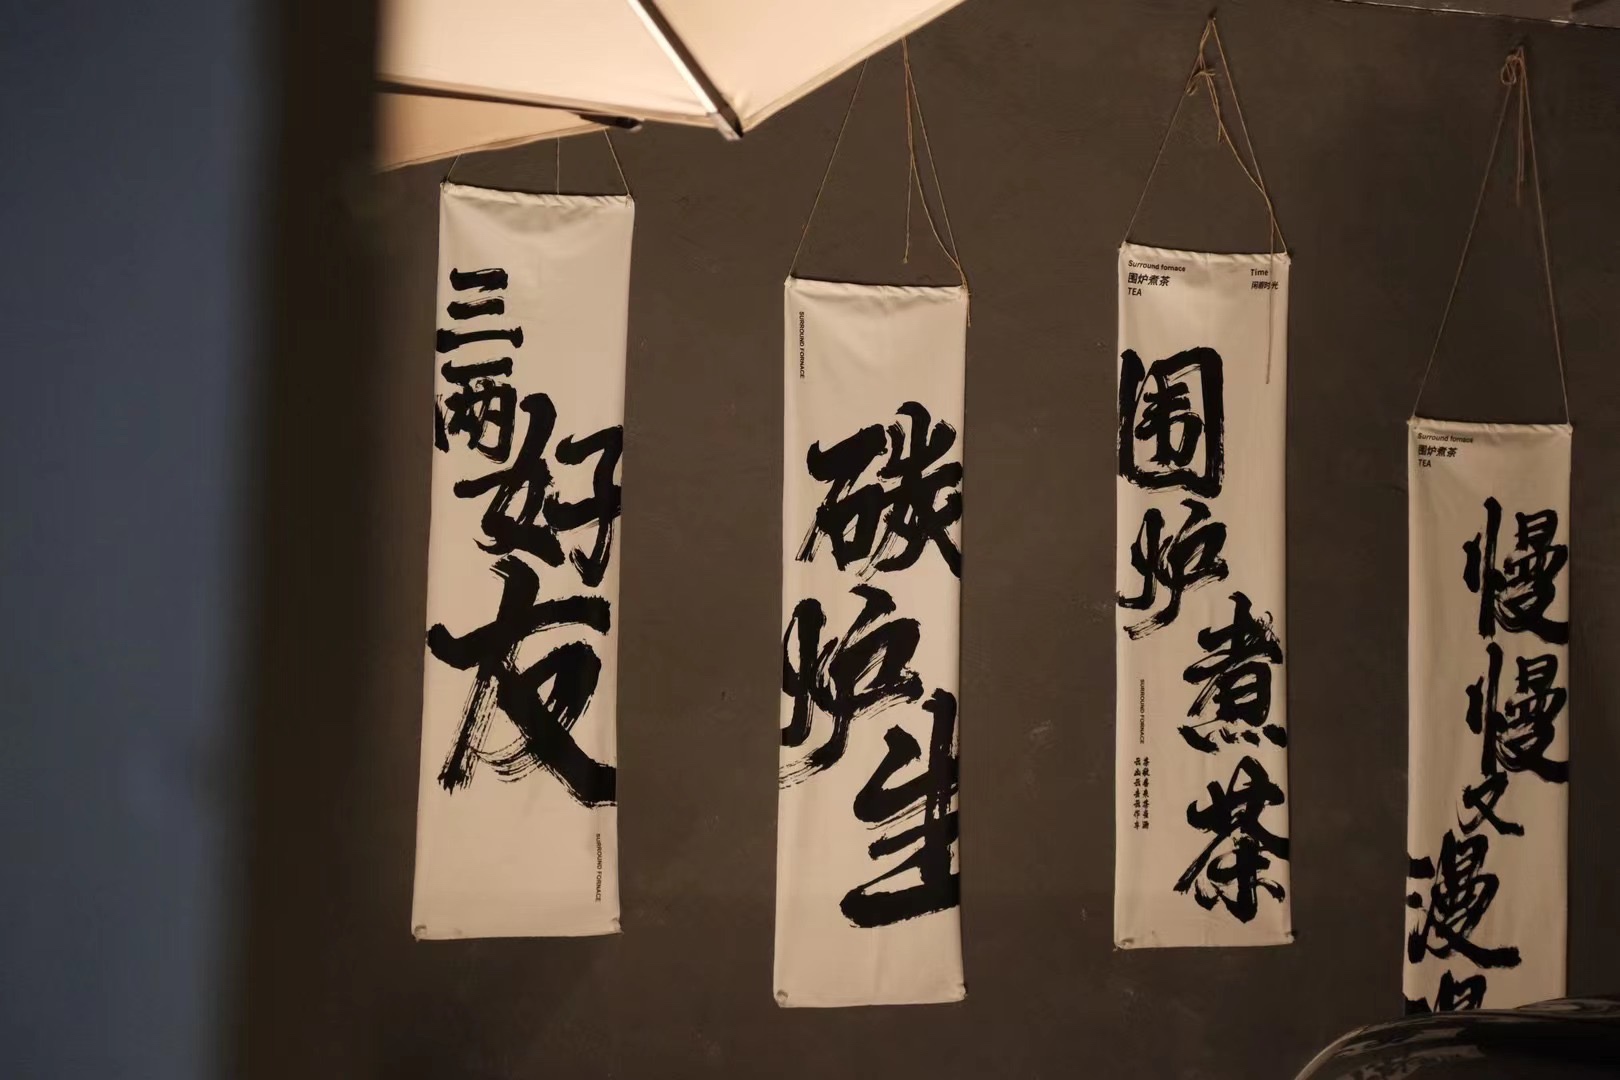 三两好友
SURROUND FORNACE
SURROUND FORNACE
碳炉生
Surround fornace
围炉煮茶
TEA
Time
围炉煮茶
SURROUND FORNACE
Surround fornace
围炉煮茶
TEA
慢慢又漫